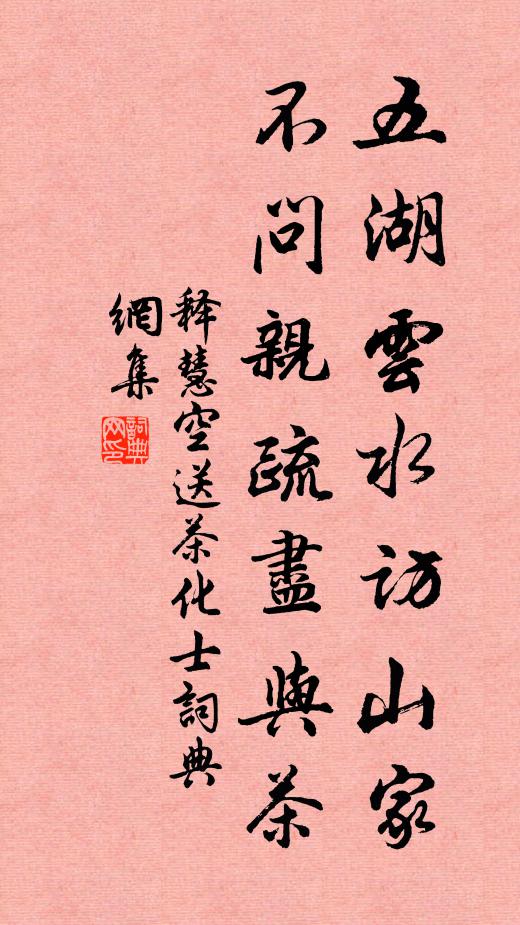 五湖雲水访山家
不问親疏盡與茶
释慧空送茶化士詞典
網集
詞典
网印